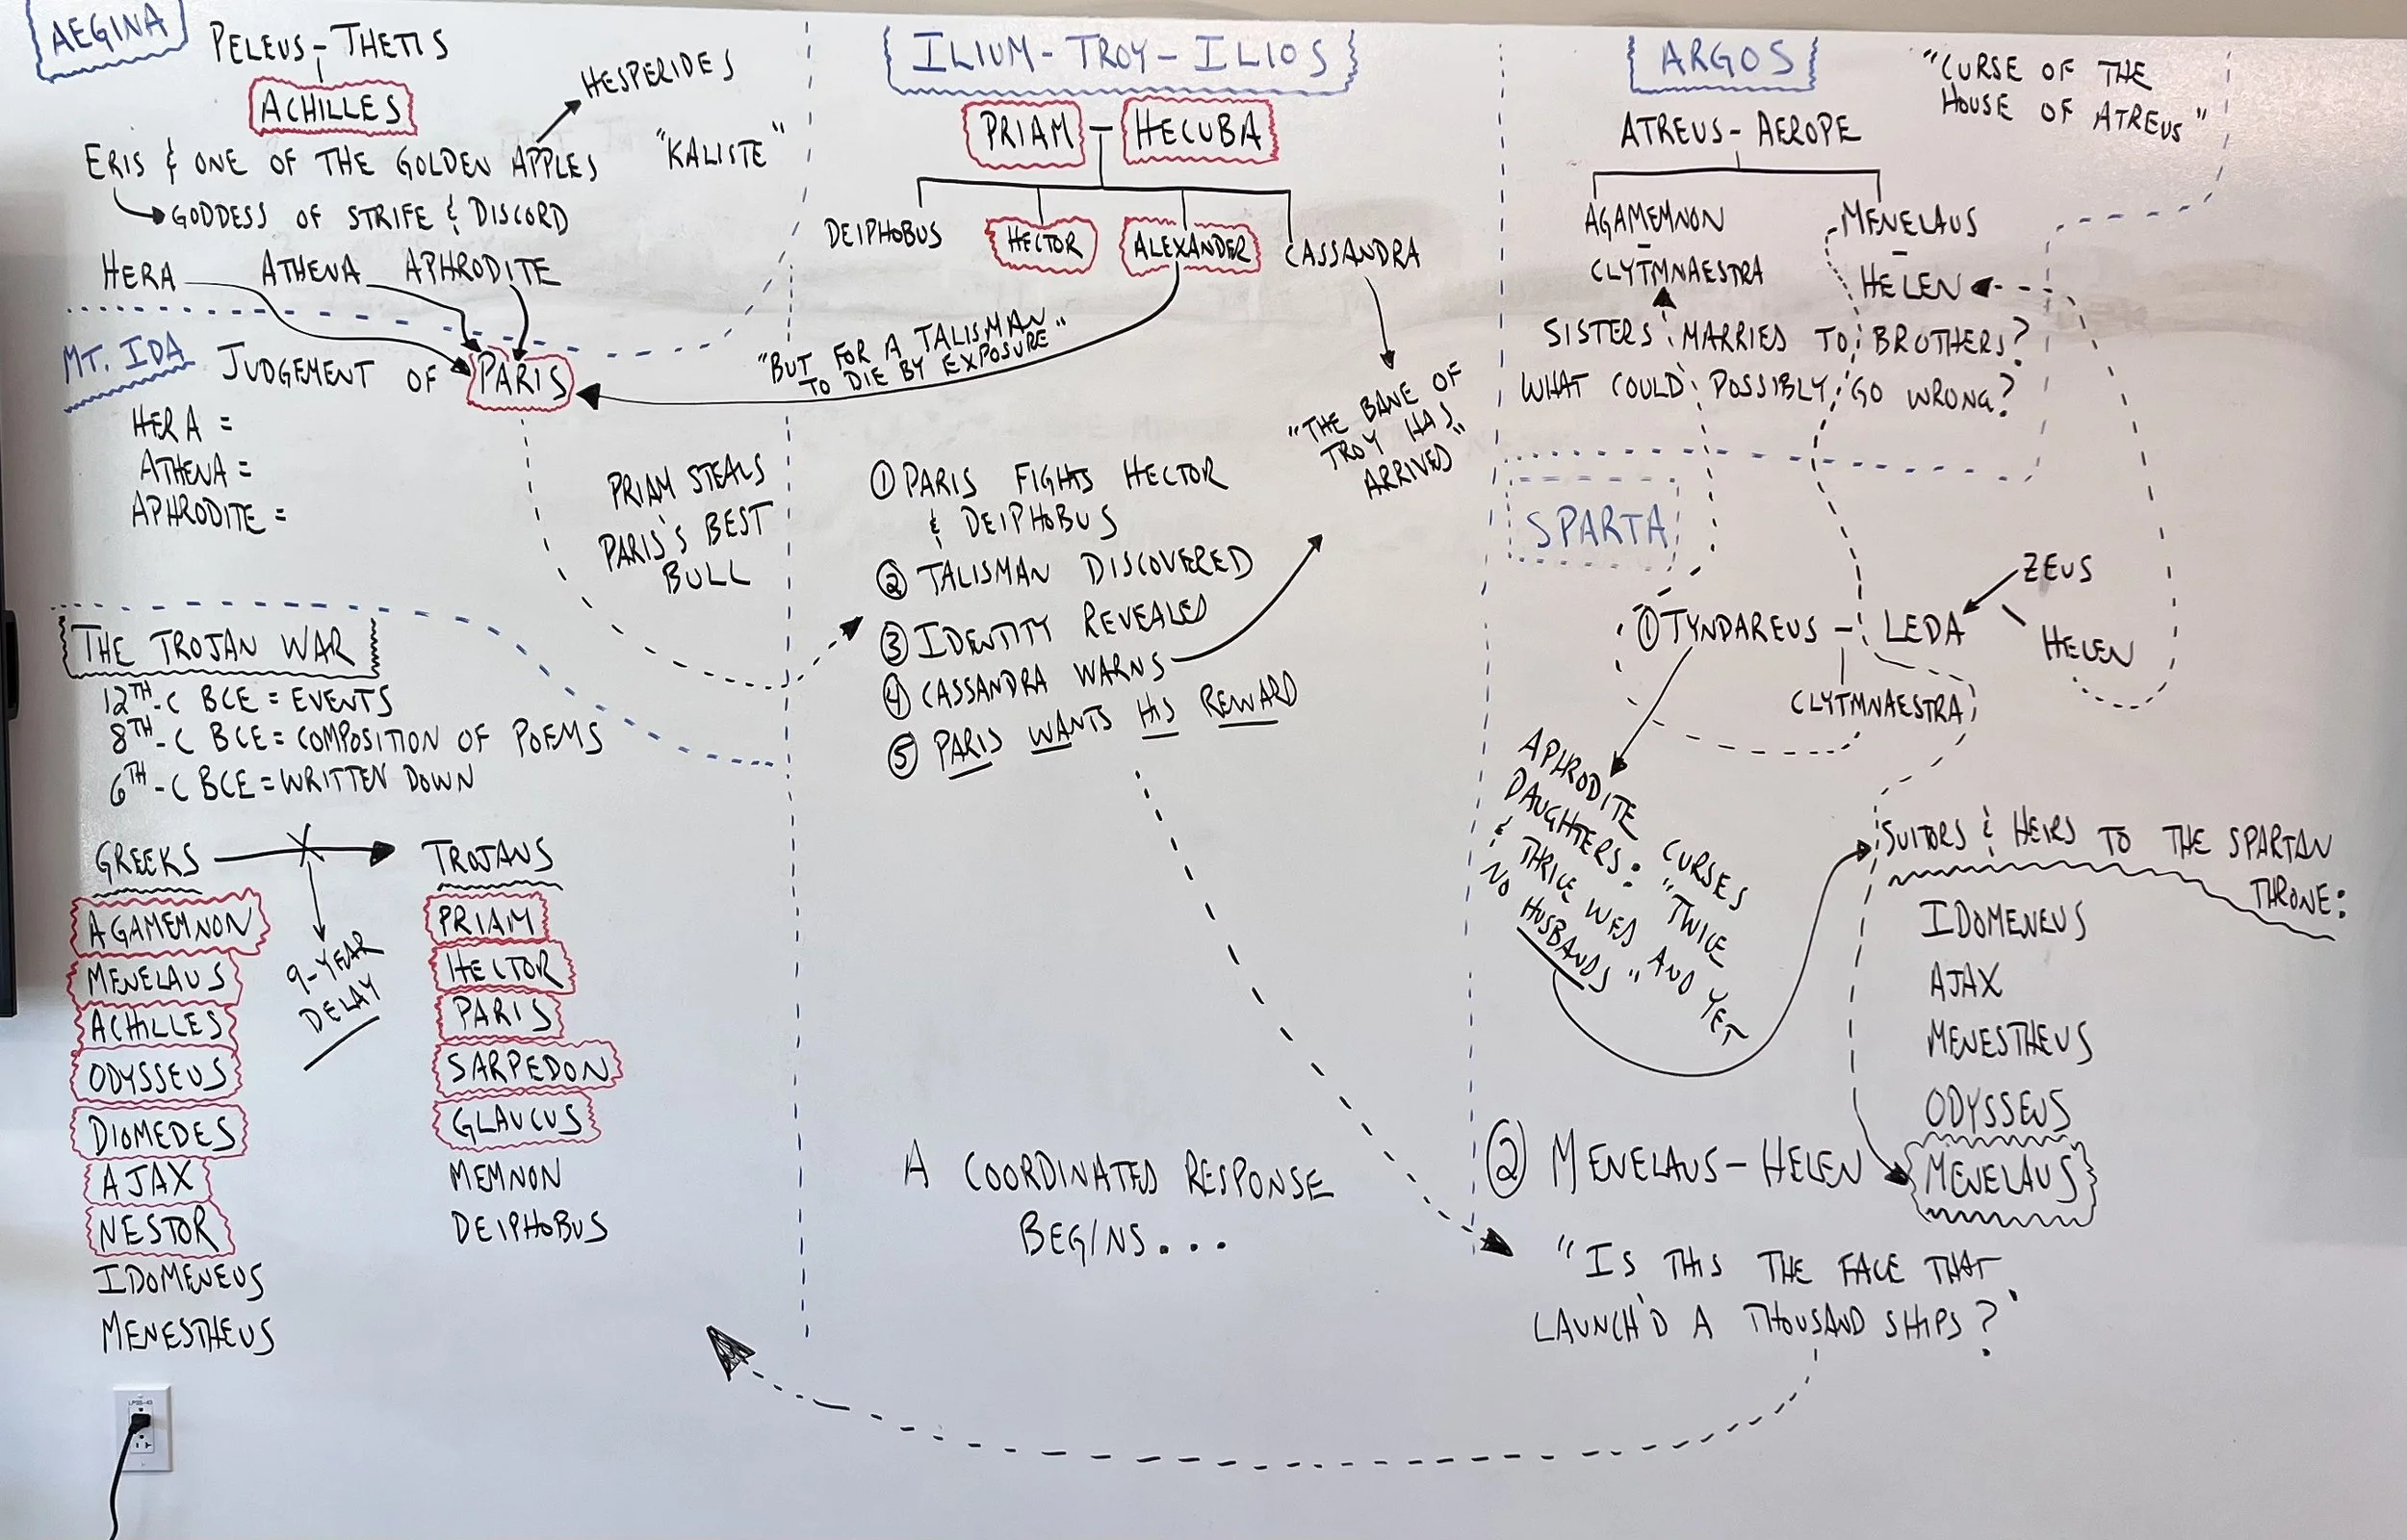 AEGINA
PELEUS - THETIS
ACHILLES
HESPERIDES
ERIS & ONE OF THE GOLDEN APPLES
"KALISTE"
GODDESS OF STRIFE & DISCORD
HERA ATHENA APHRODITE
MT. IDA
JUDGEMENT OF PARIS
HERA =
ATHENA =
APHRODITE =
PRIAM STEALS
PARIS'S BEST
BULL
THE TROJAN WAR
12TH-C BCE = EVENTS
8TH-C BCE = COMPOSITION OF POEMS
6TH-C BCE = WRITTEN DOWN
GREEKS
AGAMEMNON
MENELAUS
ACHILLES
ODYSSEUS
DIOMEDES
AJAX
NESTOR
IDOMENEUS
MENESTHEUS
9-YEAR
DELAY
TROJANS
PRIAM
HECTOR
PARIS
SARPEDON
GLAUCUS
MEMNON
DEIPHOBUS
LPSS-43
ILIUM - TROY - ILIOS
PRIAM - HECUBA
DEIPHOBUS HECTOR ALEXANDER CASSANDRA
"BUT FOR A TALISMAN"
TO DIE BY EXPOSURE
"THE BANE OF
TROY HAS
ARRIVED"
① PARIS FIGHTS HECTOR
& DEIPHOBUS
② TALISMAN DISCOVERED
③ IDENTITY REVEALED
④ CASSANDRA WARNS
⑤ PARIS WANTS HIS REWARD
A COORDINATED RESPONSE
BEGINS...
ARGOS
"CURSE OF THE
HOUSE OF ATREUS"
ATREUS - AEROPE
AGAMEMNON
-
CLYTMNAESTRA
MENELAUS
-
HELEN
SISTERS MARRIED TO BROTHERS?
WHAT COULD POSSIBLY GO WRONG?
SPARTA
ZEUS
① TYNDAREUS - LEDA
HELEN
CLYTMNAESTRA
APHRODITE CURSES
DAUGHTERS: "TWICE
& THRICE WED AND YET
NO HUSBANDS"
SUITORS & HEIRS TO THE SPARTAN
THRONE:
IDOMENEUS
AJAX
MENESTHEUS
ODYSSEUS
MENELAUS
② MENELAUS - HELEN
"IS THIS THE FACE THAT
LAUNCH'D A THOUSAND SHIPS?"